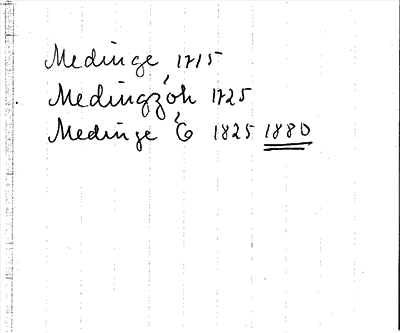 Medinge 1715
Medingzóh 1725
Medinge É 1825 1880